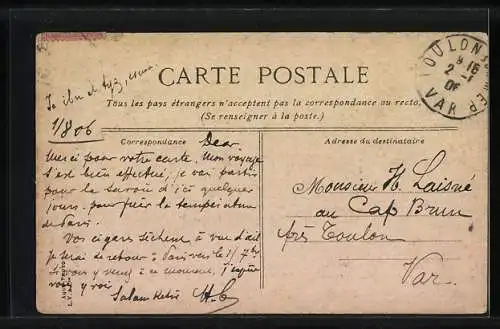 CARTE POSTALE
Tous les pays étrangers n'acceptent pas la correspondance au recto.
(Se renseigner à la poste.)
1/8 06
Correspondance
Dear
Merci pour votre carte, Mon voyage
s'est bien effectué, je vais partir
pour la Savoie d'ici quelques
jours. pour fuir la température
de Paris.
Vos cigares sèchent à vue d'œil
je serai de retour à Paris vers le
si vous y venez à ce moment,
vous y voir
H. L.
Adresse du destinataire
Monsieur H. Laisné
au Cap Brun
près Toulon
Var.
TOULON S MER
8 16
2 -
06
VAR